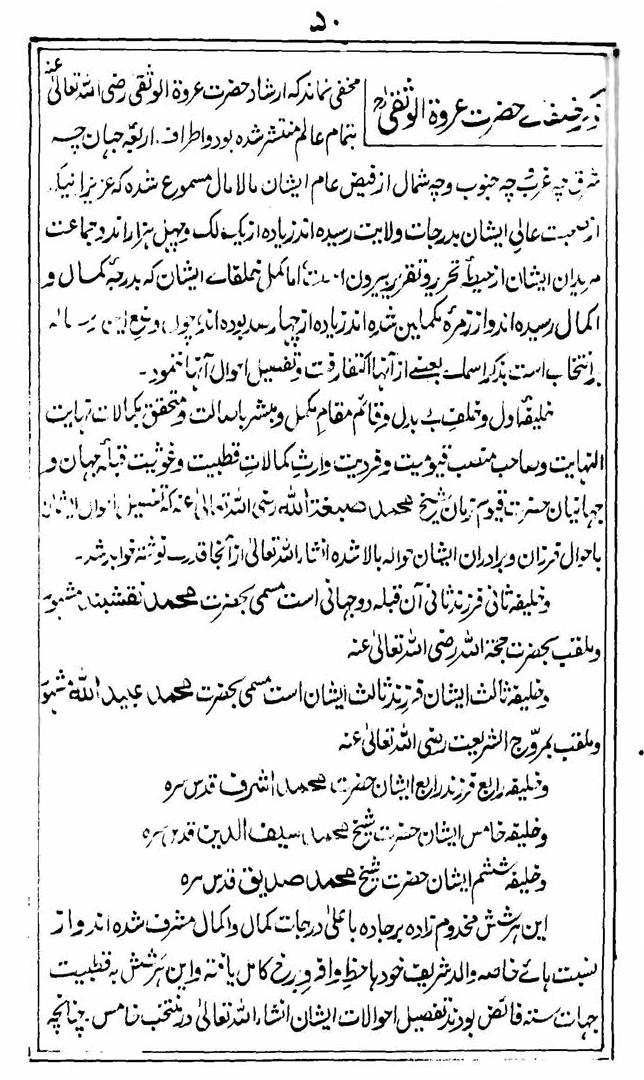 ۵۰
ذکر خلفائے حضرت عروۃ الوثقیٰ
مخفی نماند که ارشاد حضرت عروۃ الوثقی رضی الله تعالیٰ عنہ
بتمام عالم منتشر شده بود و اطراف اربعہ جہان چہ
شرق چہ غرب چہ جنوب و چہ شمال از فیض عام ایشان مالامال مسموع شده که عزیزانیکہ
از صحبت عالی ایشان بدرجات ولایت رسیده اند زیاده از یک لک و چہل ہزار اند و جماعت
مریدان ایشان از حیطۂ تحریر و تقریر بیرون است اما کمل خلفاے ایشان کہ بدرجۂ کمال و
اکمال رسیده اند و از زمرۂ مکملین شده اند زیاده از چہار صد بوده اند چون وضع این رسالہ
بر انتخاب است بذکر اسماے بعضے از آنها اکتفا رفت و تفصیل احوال آنها ننمود۔
خلیفہ اول و خلف بے بدل و قائم مقام مکمل و مبشر باصالت و متحقق بکمالات نہایت
النہایت و صاحب منصب قیومیت و فردیت وارث کمالات قطبیت و غوثیت قبلہ جہان و
جہانیان حضرت قیوم زمان شیخ محمد صبغۃ الله رضی الله تعالیٰ عنہ کہ تفصیل احوال ایشان
با حوال فرزندان و برادران ایشان حوالہ بالا شده انشاء الله تعالیٰ از آنجا قدرے نوشتہ خواہد شد۔
و خلیفہ ثانی فرزند ثانی آن قبلہ دو جہانی است مسمی بحضرت محمد نقشبند مشہور
و ملقب بحضرت حجۃ الله رضی الله تعالیٰ عنہ
و خلیفہ ثالث ایشان فرزند ثالث ایشان است مسمی بحضرت محمد عبید الله مشہور
و ملقب بمروّج الشریعت رضی الله تعالیٰ عنہ
و خلیفہ رابع فرزند رابع ایشان حضرت محمد اشرف قدس سرہ
و خلیفہ خامس ایشان حضرت شیخ محمد سیف الدین قدس سرہ
و خلیفہ ششم ایشان حضرت شیخ محمد صدیق قدس سرہ
این ہر شش مخدوم زاده بر جاده باعلیٰ درجات کمال و اکمال مشرف شده اند و از
نسبت ہائے خاصہ والد شریف خود ہا حظ وافر و برخ کامل یافتہ و این ہر شش بہ قطبیت
جہات ستہ فائض بودند تفصیل احوالات ایشان انشاء الله تعالیٰ در منتخب خامس۔ چنانچہ